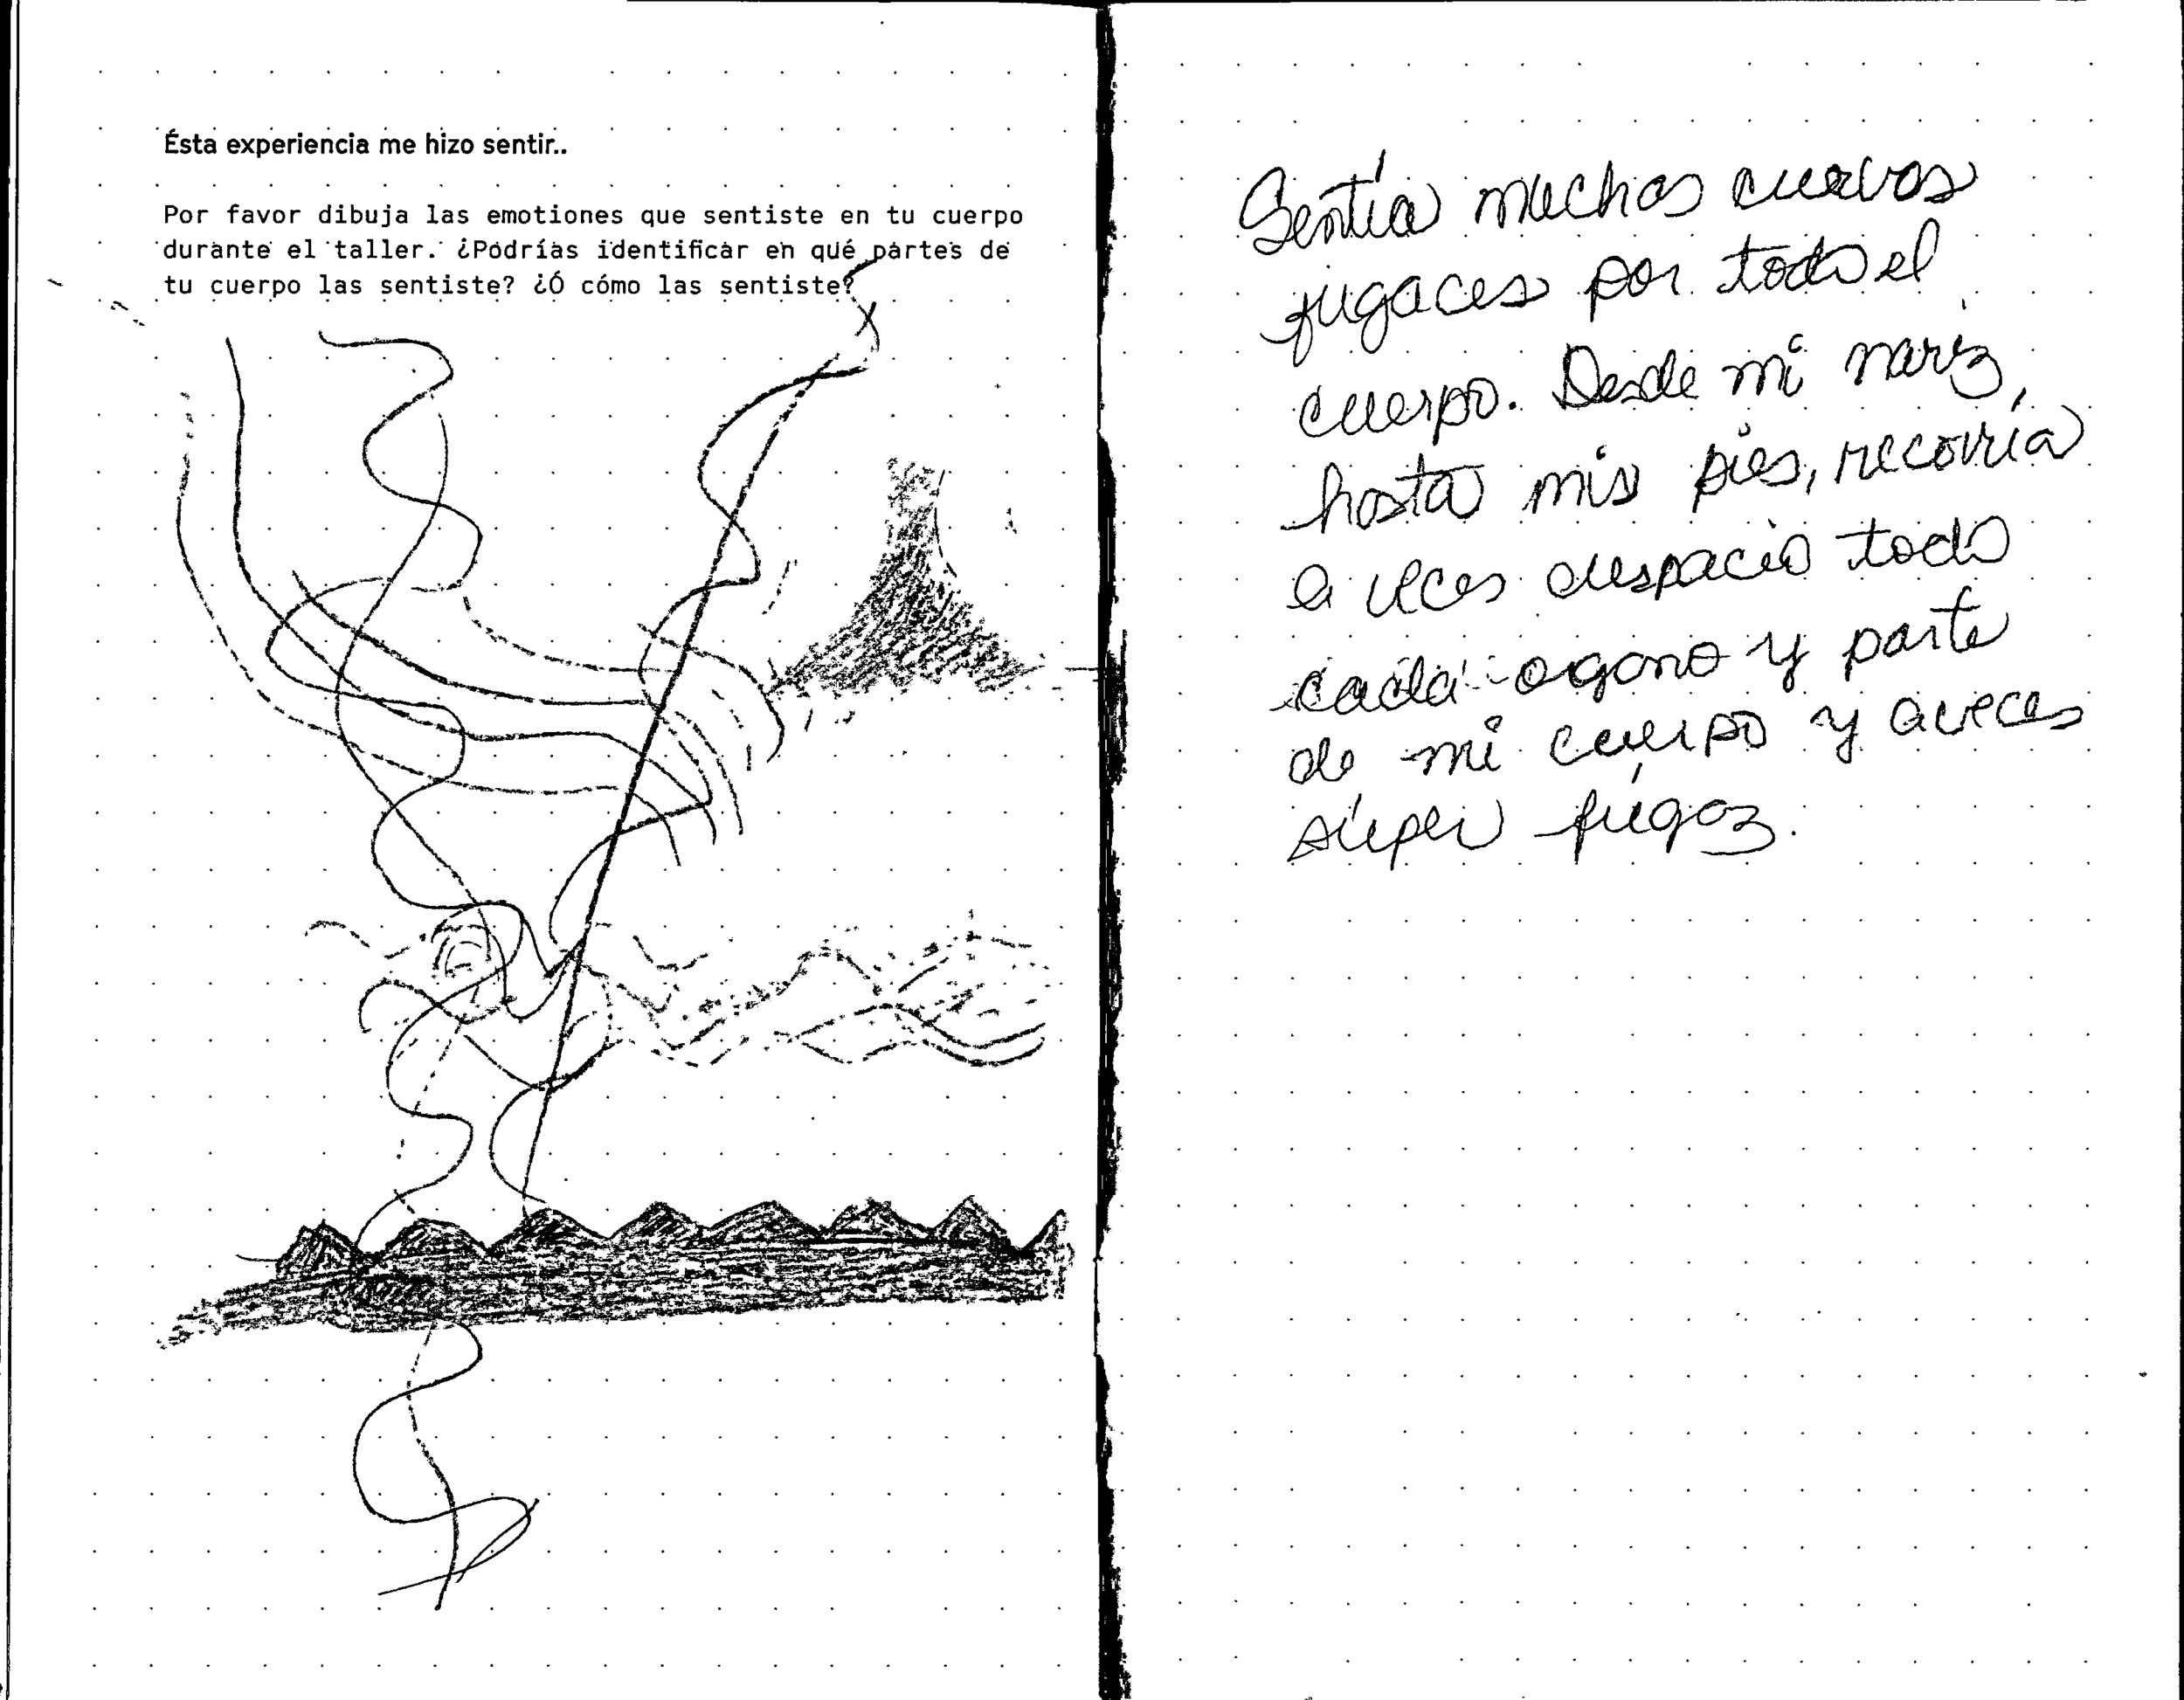 Ésta experiencia me hizo sentir..
Por favor dibuja las emotiones que sentiste en tu cuerpo
durante el taller. ¿Podrías identificar en qué partes de
tu cuerpo las sentiste? ¿Ó cómo las sentiste?
Sentía muchas curvas
fugaces por todo el
cuerpo. Desde mi nariz,
hasta mis pies, recorría
a veces despacio todo
cada ogano y parte
de mi cuerpo y aveces
súper fúgaz.